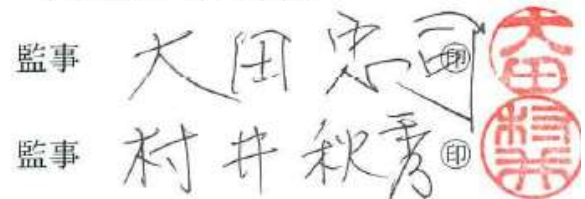 監事 大田忠司 ㊞ 大田
監事 村井秋秀 ㊞ 村井